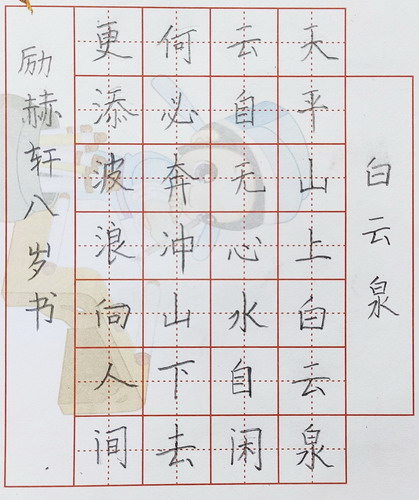 白云泉
天平山上白云泉
云自无心水自闲
何必奔冲山下去
更添波浪向人间
励赫轩八岁书